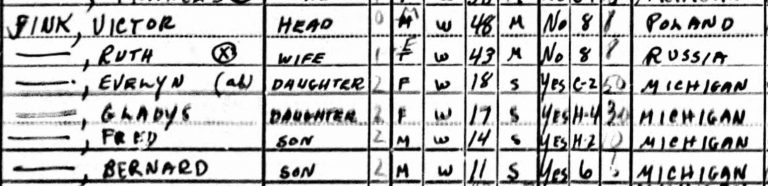 FINK, VICTOR HEAD 0 M W 48 M No 8 8 POLAND
, RUTH Ⓧ WIFE 1 F W 43 M No 8 8 RUSSIA
, EVELYN (ab) DAUGHTER 2 F W 18 S Yes C-2 50 MICHIGAN
, GLADYS DAUGHTER 2 F W 17 S YES H-4 30 MICHIGAN
, FRED SON 2 M W 14 S YES H-2 MICHIGAN
, BERNARD SON 2 M W 11 S Yes 6 MICHIGAN